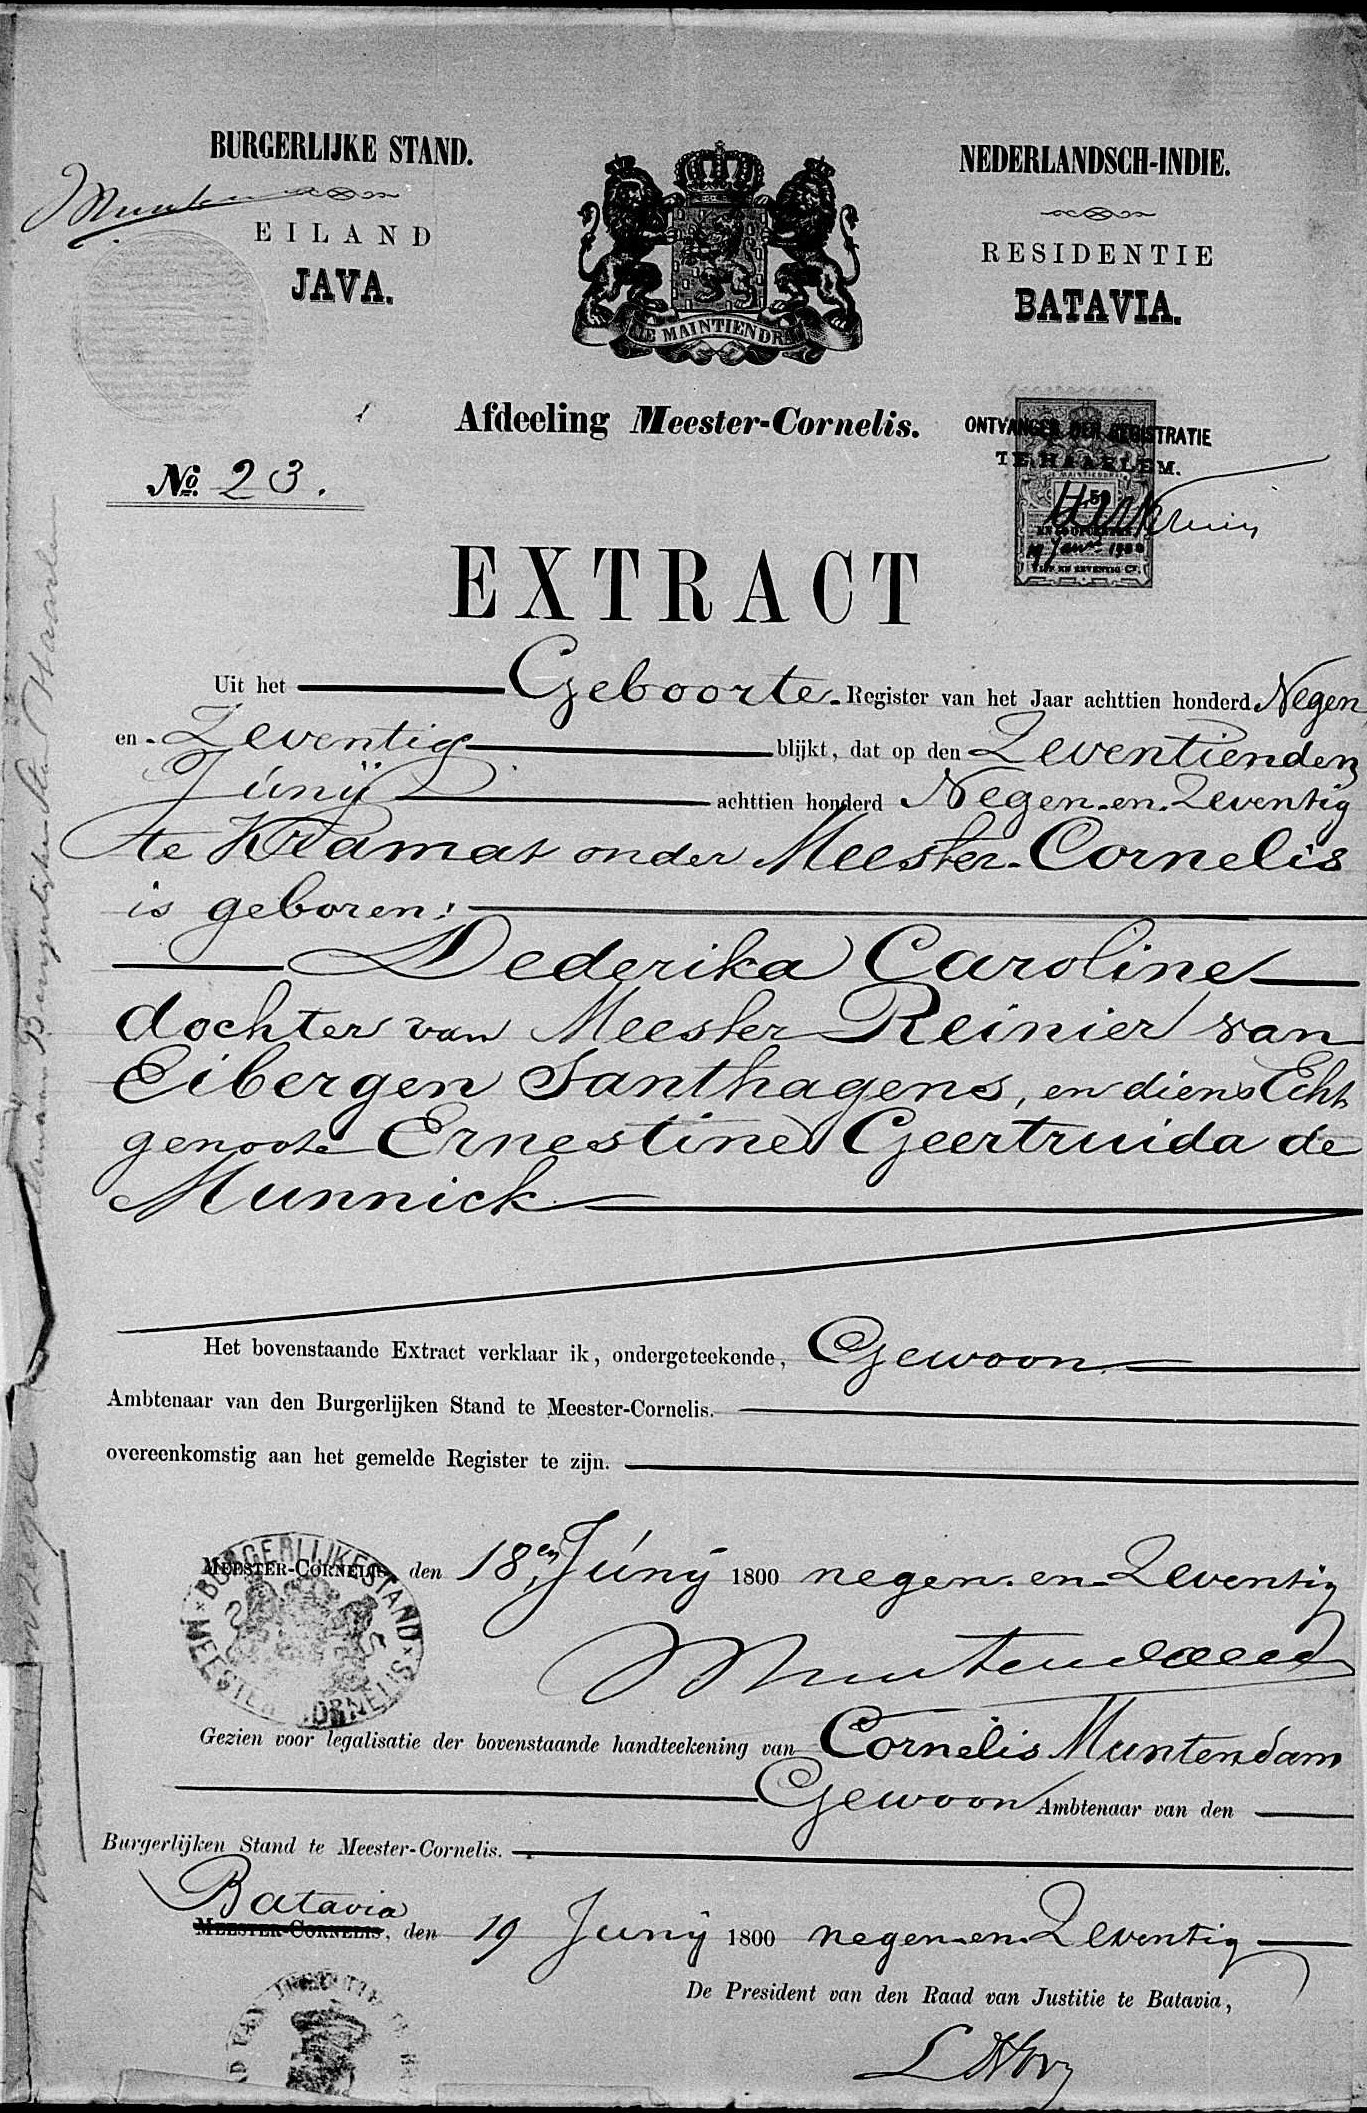 BURGERLIJKE STAND.
NEDERLANDSCH-INDIE.
EILAND
JAVA.
RESIDENTIE
BATAVIA.
JE MAINTIENDRAI
Afdeeling Meester-Cornelis.
ONTVANGER DER REGISTRATIE
TE HAARLEM.
No. 23.
EXTRACT
Uit het Geboorte Register van het Jaar achttien honderd Negen
en Zeventig blijkt, dat op den Zeventienden
Junij achttien honderd Negen en Zeventig
te Kramat onder Meester-Cornelis
is geboren:
Dederika Caroline
dochter van Meester Reinier van
Eibergen Santhagens, en diens Echt
genoote Ernestine Geertruida de
Munnick
Het bovenstaande Extract verklaar ik, ondergeteekende, Gewoon
Ambtenaar van den Burgerlijken Stand te Meester-Cornelis.
overeenkomstig aan het gemelde Register te zijn.
MEESTER-CORNELIS den 18en Junij 1800 negen en Zeventig
BURGERLIJKE STAND MEESTER CORNELIS
Muntendam
Gezien voor legalisatie der bovenstaande handteekening van Cornelis Muntendam
Gewoon Ambtenaar van den
Burgerlijken Stand te Meester-Cornelis.
Batavia
MEESTER-CORNELIS, den 19 Junij 1800 negen en Zeventig
De President van den Raad van Justitie te Batavia,